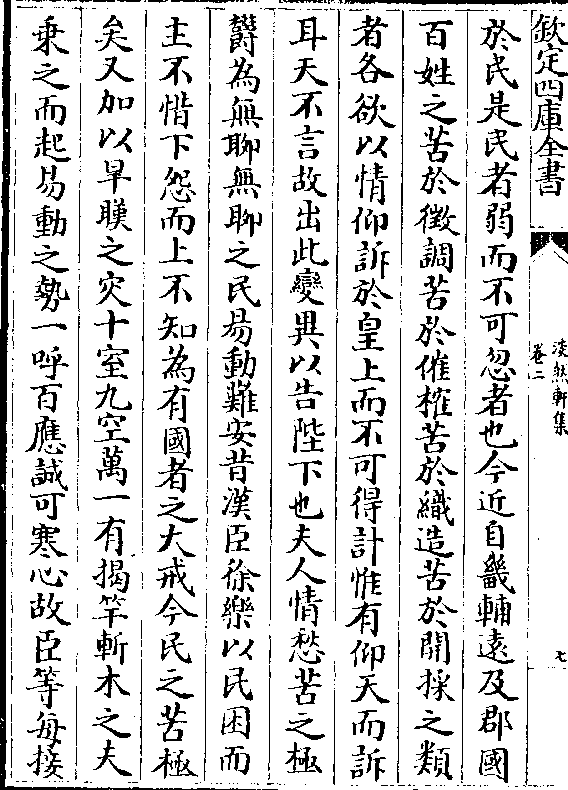 欽定四庫全書
淡然軒集
卷二
七
於民是民者弱而不可忽者也今近自畿輔遠及郡國
百姓之苦於徵調苦於催榷苦於織造苦於開採之類
者各欲以情仰訴於皇上而不可得計惟有仰天而訴
耳天不言故出此變異以告陛下也夫人情愁苦之極
欝為無聊無聊之民易動難安昔漢臣徐樂以民困而
主不惜下怨而上不知為有國者之大戒今民之苦極
矣又加以旱暵之灾十室九空萬一有揭竿斬木之夫
乗之而起易動之勢一呼百應誠可寒心故臣等每接